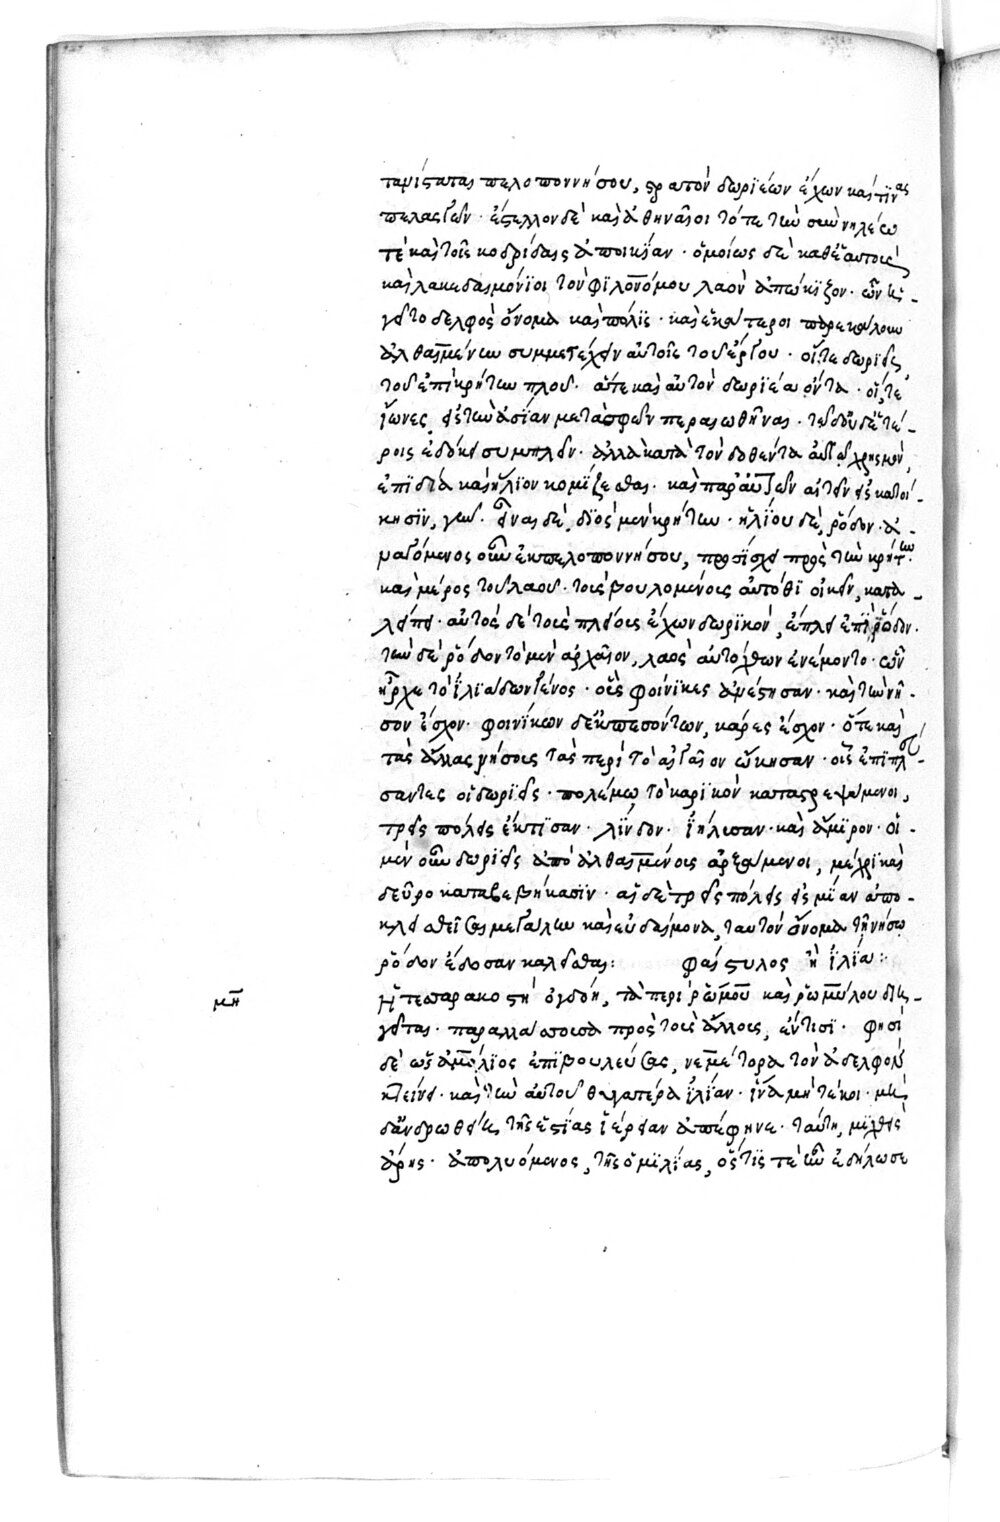 ταμίσταται πελοποννήσου, στρατὸν δωριέων ἔχων καὶ τινας
πελασγῶν· ἔστελλον δὲ καὶ ἀθηναῖοι τότε τὴν σὺν νηλέω
τὲ καὶ τοῖς κοδρίδαις ἀποικίαν· ὁμοίως δὲ καθεαυτοὺς
καὶ λακεδαιμόνιοι τὸν φιλονόμου λαὸν ἀπώκιζον· ὧν εἰσ-
γυτο δελφὸς ὄνομα καὶ πόλις· καὶ ἑκάτεροι παρεκάλουν
ἀλθαιμένων συμμετέχειν αὐτοῖς τοῦ ἔργου· οἵ τε δωριεῖς
τοῦ ἐπὶ κρήτην πλοῦ· ἅτε καὶ αὐτὸν δωριέα ὄντα· οἵ τε
ἴωνες, εἰς τὴν ἀσίαν μετὰ σφῶν περαιωθῆναι· τῷ δ' οὐδετέ-
ροις ἐδόκει συμπλεῖν· ἀλλὰ κατὰ τὸν δοθέντα αὐτῷ χρησμὸν,
ἐπὶ δία καὶ ἥλιον κομίζεσθαι· καὶ παρ' αὐτῶν αἰτεῖν εἰς κατοί-
κησιν, γῆν· εἶναι δὲ, διὸς μὲν κρήτην· ἡλίου δὲ, ῥόδον· ἀ-
ναγόμενος οὖν ἐκ πελοποννήσου, προσίσχει πρὸς τὴν κρήτην·
καὶ μέρος τοῦ λαοῦ· τοῖς βουλομένοις αὐτόθι οἰκεῖν, κατα-
λείπει· αὐτὸς δὲ τοὺς πλείους ἔχων δωρικὸν, ἔπλει ἐπὶ ῥόδον·
τὴν δὲ ῥόδον τὸ μὲν ἀρχαῖον, λαὸς αὐτόχθων ἐνέμοντο· ὧν
ἦρχε τὸ ἡλιαδῶν γένος· οὓς φοίνικες ἀνέστησαν· καὶ τὴν νῆ-
σον ἔσχον· φοινίκων δ' ἐκπεσόντων, κᾶρες ἔσχον· ὅτε καὶ
τὰς ἄλλας νήσους τὰς περὶ τὸ αἰγαῖον ᾤκησαν· οἷς ἐπιπλεύ-
σαντες οἱ δωριεῖς· πολέμῳ τὸ καρικὸν καταστρεψάμενοι,
τρεῖς πόλεις ἔκτισαν· λίνδον· ἰηλισαν· καὶ άμιρον· οἱ
μὲν οὖν δωριεῖς ἀπὸ ἀλθαιμένους ἀρξάμενοι, μέχρι καὶ
δεῦρο καταβεβήκασιν· αἱ δὲ τρεῖς πόλεις εἰς μίαν ἀπο-
κλεισθεῖσαι μεγάλην καὶ εὐδαίμονα, ταυτὸν ὄνομα τῇ νήσῳ
ῥόδον ἔδοσαν καλεῖσθαι: φαίστυλος ἢ ἰλία:
μη Ἡ τεσσαρακοστὴ ὀγδόη, τὰ περὶ ῥώμου καὶ ῥωμύλου διη-
γεῖται· παραλλάσσουσα πρὸς τοὺς ἄλλους, ἔντισι· φησὶ
δὲ ὡς ἀμόλιος ἐπιβουλεύσας, νεμέτορα τὸν ἀδελφὸν
κτείνει· καὶ τὴν αὐτοῦ θυγατέρα ἰλίαν· ἵνα μὴ τέκοι· μὴ
δ' ἀνδρωθείη τῆς ἑστίας ἱέρειαν ἀπέφηνε· ταύτῃ, μιχθεὶς
ἄρης· ἀπολυόμενος, τῆς ὁμιλίας, ὅστις τὲ ὢν ἐδήλωσε